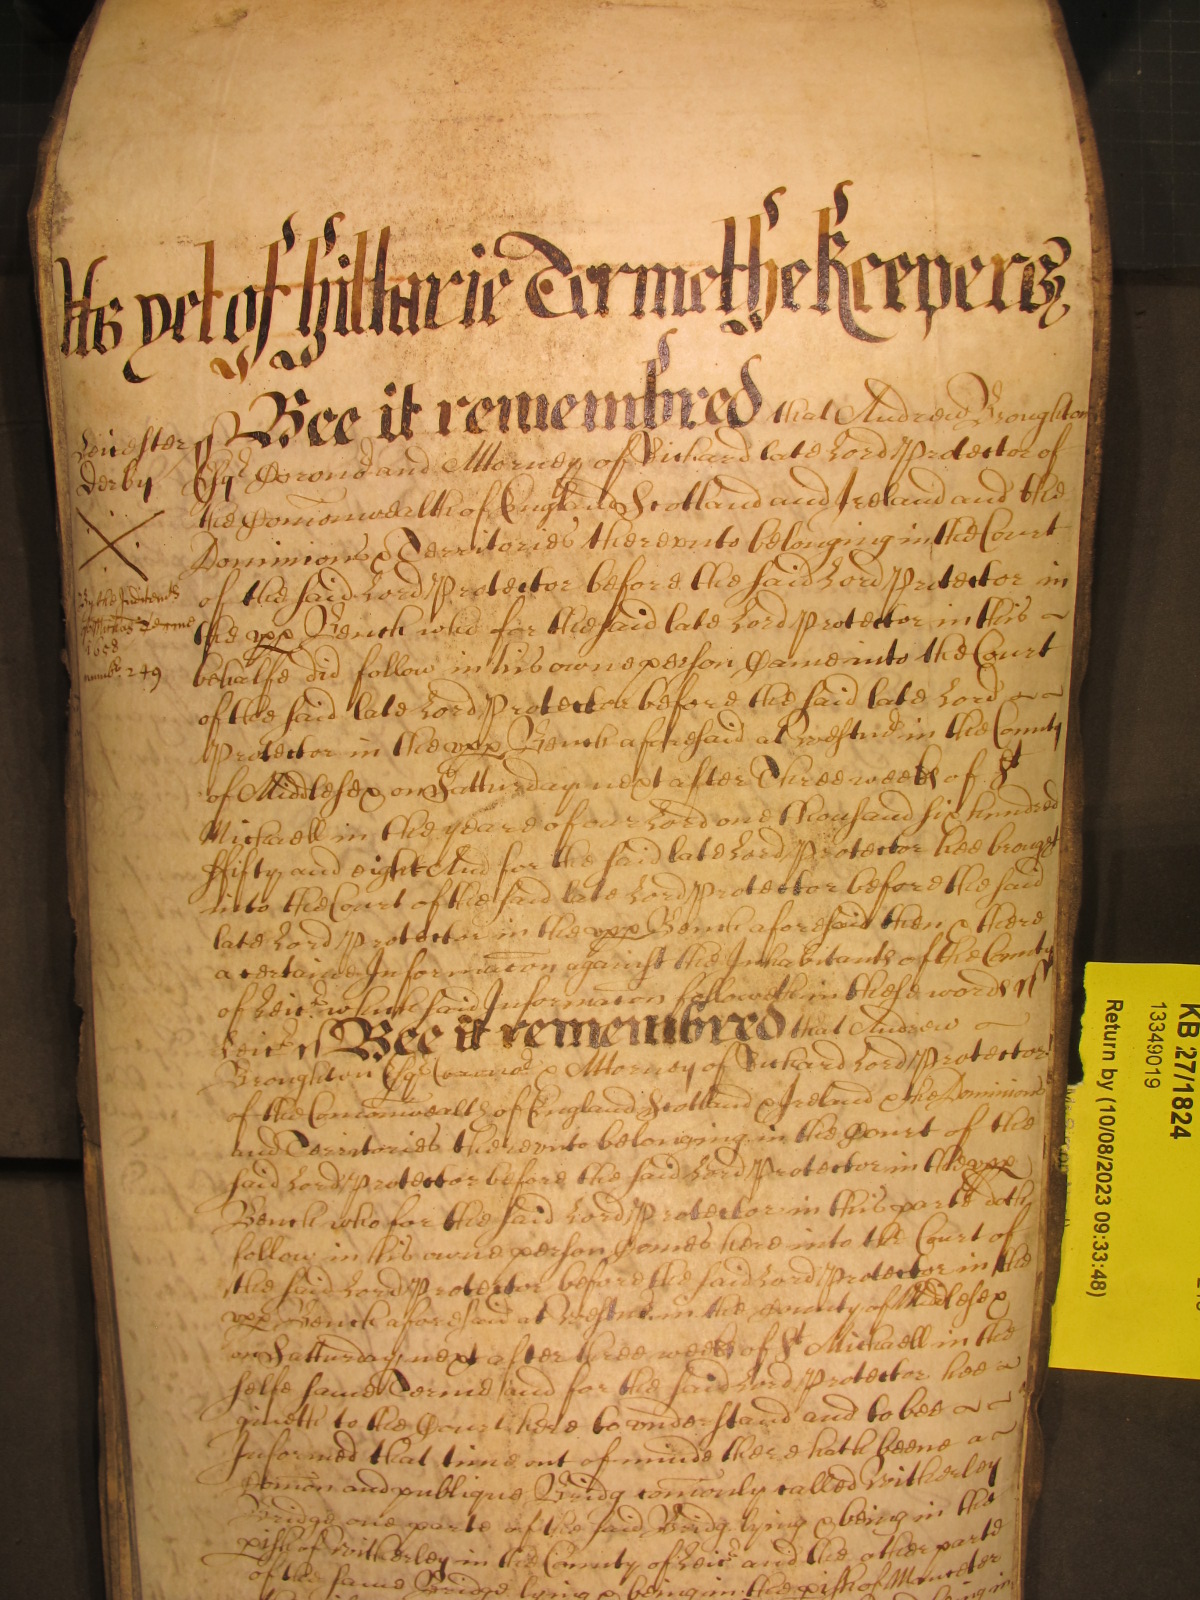 As yet of Hillarie Terme the Keepers
Leicester ss Bee it remembred that Andrew Broughton
Derby
Esqr Coronr and Attorney of Richard late Lord Protector of
the Comonwealth of England Scotland and Ireland and the
Dominions & Territories therevnto belonging in the Court
of the said Lord Protector before the said Lord Protector in
the vpp Bench who for the said late Lord Protector in this
behalfe did follow in his owne person Came into the Court
of the said late Lord Protector before the said late Lord
Protector in the vpp Bench aforesaid at Westmr in the County
of Middlesex on Satturday next after Three weeks of St
Michaell in the yeare of our Lord one thousand six hundred
ffifty and eight And for the said late Lord Protector hee brought
into the Court of the said late Lord Protector before the said
late Lord Protector in the vpp Bench aforesaid then & there
a certaine Informacon against the Inhabitants of the County
of Leicr which said Informacon followeth in these words ss
Leicr ss Bee it remembred that Andrew
Broughton Esqr Coronor & Attorney of Richard Lord Protector
of the Comonwealth of England Scotland & Ireland & the Dominions
and Territories therevnto belonging in the Court of the
said Lord Protector before the said Lord Protector in the vpp
Bench who for the said Lord Protector in this parte doth
follow in his owne person Comes here into the Court of
the said Lord Protector before the said Lord Protector in the
vpp Bench aforesaid at Westmr in the County of Middlesex
on Satturday next after three weeks of St Michaell in the
selfe same Terme and for the said Lord Protector hee
giveth to the Court here to vnderstand and to bee
Informed that time out of minde there hath beene a
Comon and publique Bridg comonly called Witherley
Bridge one parte of the said Bridg lying & being in the
pish of Witherley in the County of Leicr and the other parte
of the same Bridge lying & being in the pish of Manceter
By the Indictments
of Michas Terme
1658
numb: 249
KB 27/1824
13349019
Return by (10/08/2023 09:33:48)